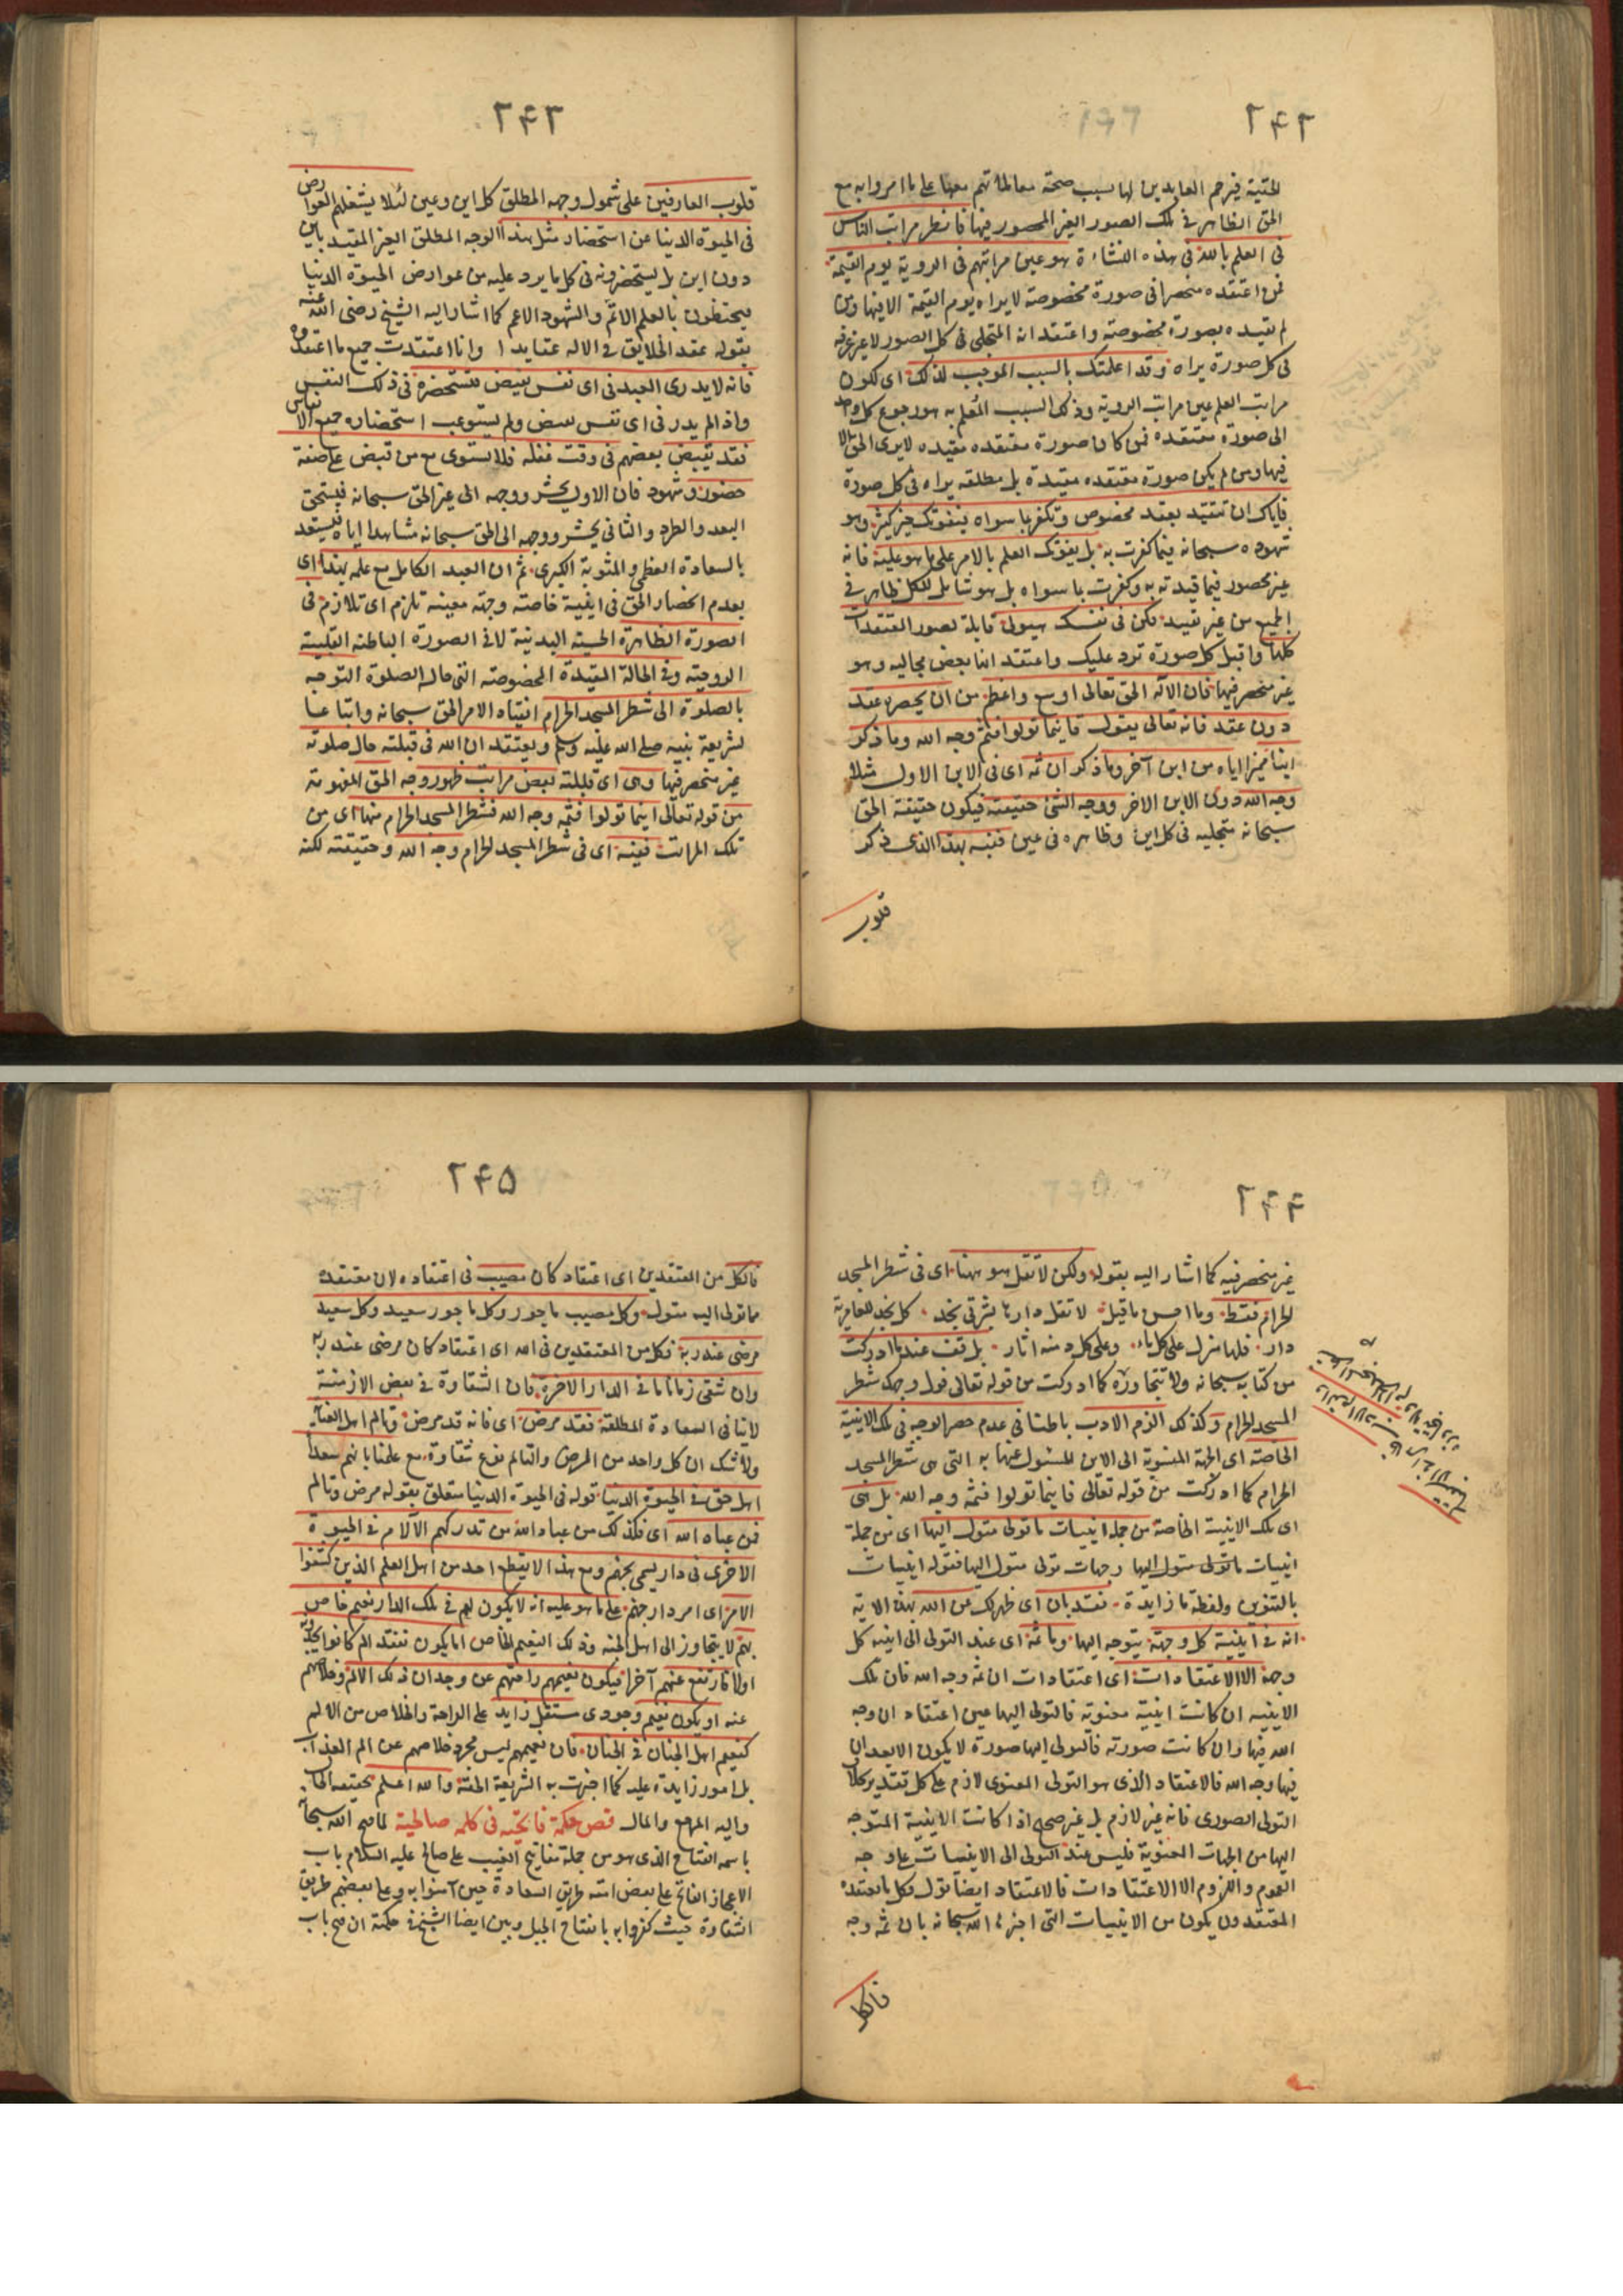 ٢٤٢
الحقية فيرحم العابدين لها بسبب صحة معاملاتهم معها على ما امروا به مع
الحق الظاهر في تلك الصور الغير المحصور فيها فانظر مراتب الناس
في العلم بالله في هذه النشاءة هو عين مراتبهم في الروية يوم القيمة
فمن اعتقده منحصرا في صورة مخصوصة لا يراه يوم القيمة الا فيها ومن
لم يقيده بصورة مخصوصة واعتقد انه المتجلي في كل الصور لا غير عرفه
في كل صورة يراه وقد اعلمتك بالسبب الموجب لذلك اى لكون
مراتب العلم عين مراتب الروية وذلك السبب المُعلم به هو رجوع كل واحد
الى صورة معتقده فمن كان صورة معتقده مقيده لا يرى الحق الا
فيها ومن لم يكن صورة معتقده مقيدة بل مطلقه يراه في كل صورة
فاياك ان تتقيد بعقد مخصوص وتكفر بما سواه فيفوتك خير كثير وهو
شهوده سبحانه فيما كفرت به بل يفوتك العلم بالامر على ما هو عليه فانه
غير محصور فيما قيدته به وكفرت بما سواه بل هو شامل للكل ظاهر في
الجميع من غير تقييد فكن في نفسك هيولى قابلة لصور المعتقدات
كلها واقبل كل صورة ترد عليك واعتقد انها بعض مجاليه وهو
غير منحصر فيها فان الاله الحق تعالى اوسع واعظم من ان يحصره عقد
دون عقد فانه تعالى يقول فاينما تولوا فثم وجه الله وما ذكر
اينا مميزا اياه من اين آخر وما ذكر ان ثمه اى في الاين الاول مثلا
وجه الله دون الاين الاخر ووجه الشئ حقيقته فيكون حقيقة الحق
سبحانه متجليه في كل اين وظاهره في عين فنبه بهذا الذى ذكر
قلوب
٢٤٣
قلوب العارفين على شمول وجهه المطلق كل اين وعين لئلا يشغلهم العوارض
في الحيوة الدنيا عن استحضار مثل هذا الوجه المطلق الغير المقيد باين
دون اين بل يستحضرونه في كل ما يرد عليه من عوارض الحيوة الدنيا
يحتظون بالعلم الاتم والشهود الاعم كما اشار اليه الشيخ رضى الله عنه
بقوله عقد الخلايق في الاله عقايدا وانا اعتقدت جميع ما اعتقدوه
فانه لا يدرى العبد في اى نفس يقبض فيستحضره في ذلك النفس
واذا لم يدر في اى نفس يقبض ولم يستوعب استحضاره جميع الانفاس
فقد يقبض بعضهم في وقت غفله فلا يستوى مع من قبض على صفة
حضور وشهود فان الاول يحشر ووجهه الى غير الحق سبحانه فيستحق
البعد والطرد والثاني يحشر ووجهه الى الحق سبحانه مشاهدا اياه فيستعد
بالسعادة العظمى والمثوبة الكبرى ثم ان العبد الكامل مع علمه بهذا اى
بعدم انحصار الحق في اينية خاصة وجهة معينة تلزم اى تلازم في
الصورة الظاهرة الحسية البدنية لا في الصورة الباطنة القلبية
الروحية وفي الحالة المقيدة المخصوصة التي حال الصلوة التوجه
بالصلوة الى شطر المسجد الحرام انقياد الامر الحق سبحانه واتباعا
لشريعة نبيه صلى الله عليه وسلم ويعتقد ان الله في قبلته حال صلوته
غير منحصر فيها وهى اى قبلته بعض مراتب ظهور وجه الحق المفهومة
من قوله تعالى اينما تولوا فثمه وجه الله فشطر المسجد الحرام منها اى من
تلك المراتب ففيه اى في شطر المسجد الحرام وجه الله وحقيقته لكنه
٢٤٤
غير منحصر فيه كما اشار اليه بقوله ولكن لا تقل هو ههنا اى في شطر المسجد
الحرام فقط وما احسن ما قيل لا تقل دارها بشرقي نجد كل نجد للعامرية
دار فلها منزل على كل ماء وعلى كل دمنه اثار بل قف عند ما ادركت
من كتابه سبحانه ولا تتجاوزه كما ادركت من قوله تعالى فول وجهك شطر
المسجد الحرام وكذلك الزم الادب باطنا في عدم حصر الوجه في تلك الاينية
الخاصة اى الجهة المنسوبة الى الاين المسئول عنها به التي هى شطر المسجد
الحرام كما ادركت من قوله تعالى فاينما تولوا فثمه وجه الله بل هى
اى تلك الاينية الخاصة من جملة اينيات ما تولى متول اليها اى من جملة
اينيات ما تولى متول اليها وجهات تولى متول اليها فقوله اينيات
بالتنوين ولفظة ما زايدة فقد بان اى ظهر لك عن الله بهذه الاية
انه في اينية كل وجهة يتوجه اليها وما ثمه اى عند التولى الى اينية كل
وجهة الا الاعتقادات اى اعتقادات ان ثمه وجه الله فان تلك
الاينيه ان كانت اينية معنوية فالتولى اليها عين اعتقاد ان وجه
الله فيها وان كانت صورته فالتولى اليها صورة لا يكون الا بعد ان
فيها وجه الله فالاعتقاد الذى هو التولى المعنوى لازم على كل تقدير بخلاف
التولى الصورى فانه غير لازم بل غير صحيح اذا كانت الاينية المتوجه
اليها من الجهات المعنوية فليس عند التولى الى الاينيات على وجه
العموم واللزوم الا الاعتقادات فالاعتقاد ايضا تول فكل ما يعتقده
المعتقدون يكون من الاينيات التي اخبر الله سبحانه بان ثمه وجه
فالكل
٢٤٥
فالكل من المعتقدين اى اعتقاد كان مصيب في اعتقاده لان معتقده
مما تولى اليه متول وكل مصيب ماجور وكل ماجور سعيد وكل سعيد
مرضى عند ربه فكل من المعتقدين في الله اى اعتقاد كان مرضى عند ربه
وان شقى زمانا ما في الدار الاخرة فان الشقاوة في بعض الازمنة
لا ينافي السعادة المطلقة فقد مرض اى فانه قد مرض وتالم اهل العناية
ولا شك ان كل واحد من المرض والتالم نوع شقاوة مع علمنا بانهم سعداء
اهل حق في الحيوة الدنيا قوله في الحيوة الدنيا متعلق بقوله مرض وتالم
فمن عباد الله اى فكذلك من عباد الله من تدركهم الآلام في الحيوة
الاخرى في دار يسمى جهنم ومع هذا لا يقطع احد من اهل العلم الذين كشفوا
الامر اى امر دار جهنم على ما هو عليه انه لا يكون لهم في تلك الدار نعيم خاص
بهم لا يتجاوز الى اهل الجنه وذلك النعيم الخاص اما يكون بفقد الم كانوا يجدونه
اولا فارتفع عنهم آخرا فيكون نعيمهم راحتهم عن وجدان ذلك الالم وخلاصهم
عنه او يكون نعيم وجودى مستقل زايد على الراحة والخلاص من الالم
كنعيم اهل الجنان في الجنان فان نعيمهم ليس مجرد خلاصهم عن الم العذاب
بل امور زايدة عليه كما اخبرت به الشريعة الحقة والله اعلم بحقيقة الحال
واليه المرجع والمال فص حكمة فاتحية في كلمة صالحية لما فتح الله سبحانه
باسمه الفتاح الذى هو من جملة مفاتيح الغيب على صالح عليه السلام باب
الاعجاز الفاتح على بعض امته طريق السعادة حين آمنوا به وعلى بعضهم طريق
الشقاوة حيث كفروا به بانفتاح الجبل وبين ايضا الشيخ في حكمته ان فتح باب